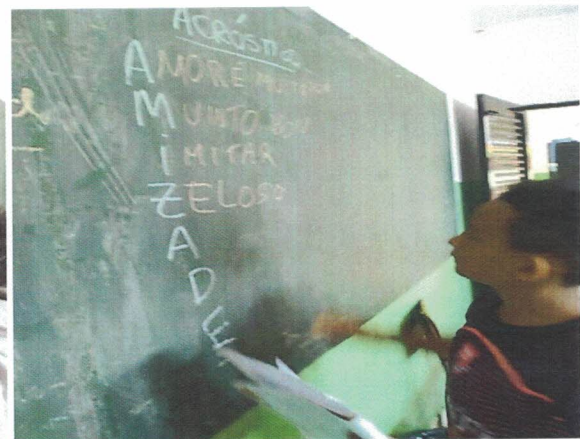 ACRÓSTICO
AMOR É
MUITO BOM
IMITAR
ZELOSO
A
D
E